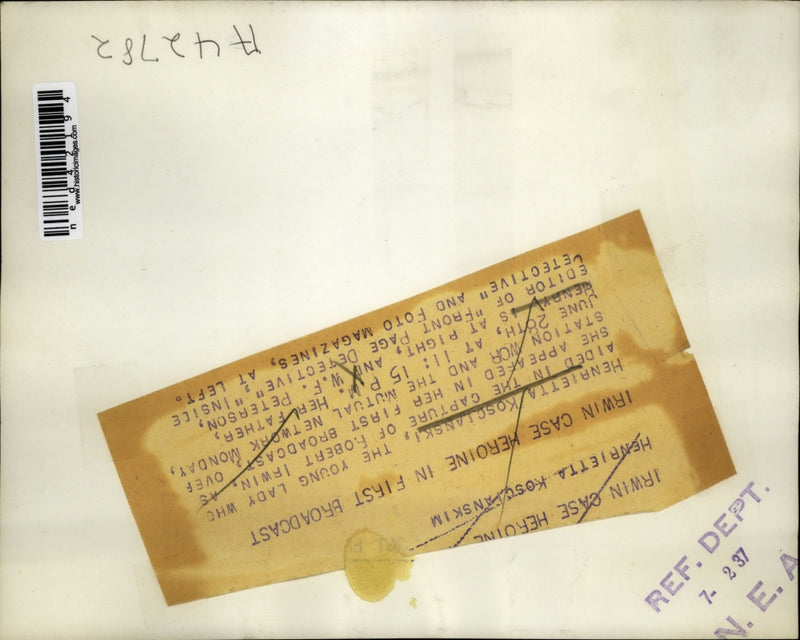 A42782
ned42194
www.historicimages.com
IRWIN CASE HEROINE
HENRIETTA KOSCIANSKIM
IRWIN CASE HEROINE IN FIRST BROADCAST
HENRIETTA KOSCIANSKI, THE YOUNG LADY WHO
AIDED IN THE CAPTURE OF ROBERT IRWIN, AS
SHE APPEARED IN HER FIRST BROADCAST, OVER
STATION WOR AND THE MUTUAL NETWORK, MONDAY,
JUNE 28TH, AT 11:15 P.M. HER FATHER,
HENRY, IS AT RIGHT, AND W.F. PETERSON,
EDITOR OF "FRONT PAGE DETECTIVE", "INSIDE
DETECTIVE" AND FOTO MAGAZINES, AT LEFT.
REF. DEPT.
7- 2 37
N. E. A